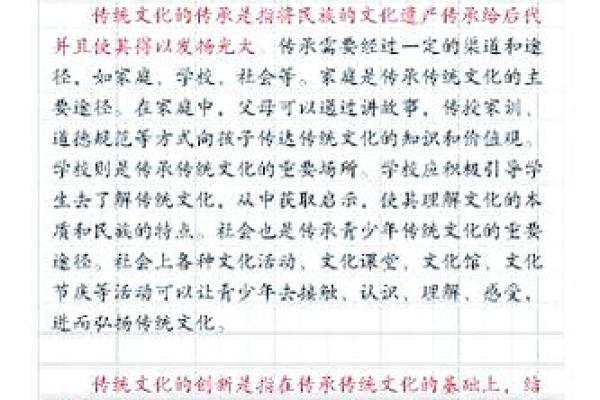 传统文化的传承是指将民族的文化遗产传承给后代
并且使其得以发扬光大。传承需要经过一定的渠道和途
径，如家庭、学校、社会等。家庭是传承传统文化的主
要途径。在家庭中，父母可以通过讲故事，传授家训、
道德规范等方式向孩子传达传统文化的知识和价值观。
学校则是传承传统文化的重要场所、学校应积极引导学
生去了解传统文化，从中获取启示，使其理解文化的本
质和民族的特点。社会也是传承青少年传统文化的重要
途径。社会上各种文化活动、文化课堂、文化馆、文化
节庆等活动可以让青少年去接触、认识、理解、感受，
进而弘扬传统文化。
传统文化的创新是指在传承传统文化的基础上，结